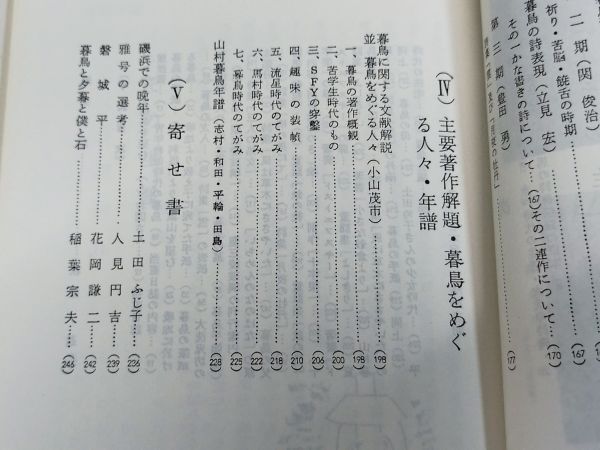 二期(関俊治)
祈り・苦脳・饒舌の時期……(167)
暮鳥の詩表現(立見 宏)
その一かな書きの詩について…(167)その二連作について…(170)
第三期(豊田 勇)
(Ⅳ)主要著作解題・暮鳥をめぐ
る人々・年譜
暮鳥に関する文献解説
並 暮鳥をめぐる人々(小山茂市)……(198)
一、暮鳥の著作概観……(198)
二、苦学生時代のもの……(200)
三、SFYの穿鑿……(206)
四、趣味の装幀……(210)
五、流星時代のてがみ……(218)
六、馬村時代のてがみ……(222)
七、暮鳥時代のてがみ……(225)
山村暮鳥年譜(志村・和田・平輪・田島)……(228)
(Ⅴ)寄せ書
磯浜での晩年……土田ふじ子…(236)
雅号の選考……人見円吉…(239)
磐城平……花岡謙二…(242)
暮鳥と夕暮と僕と石……稲葉宗夫…(246)